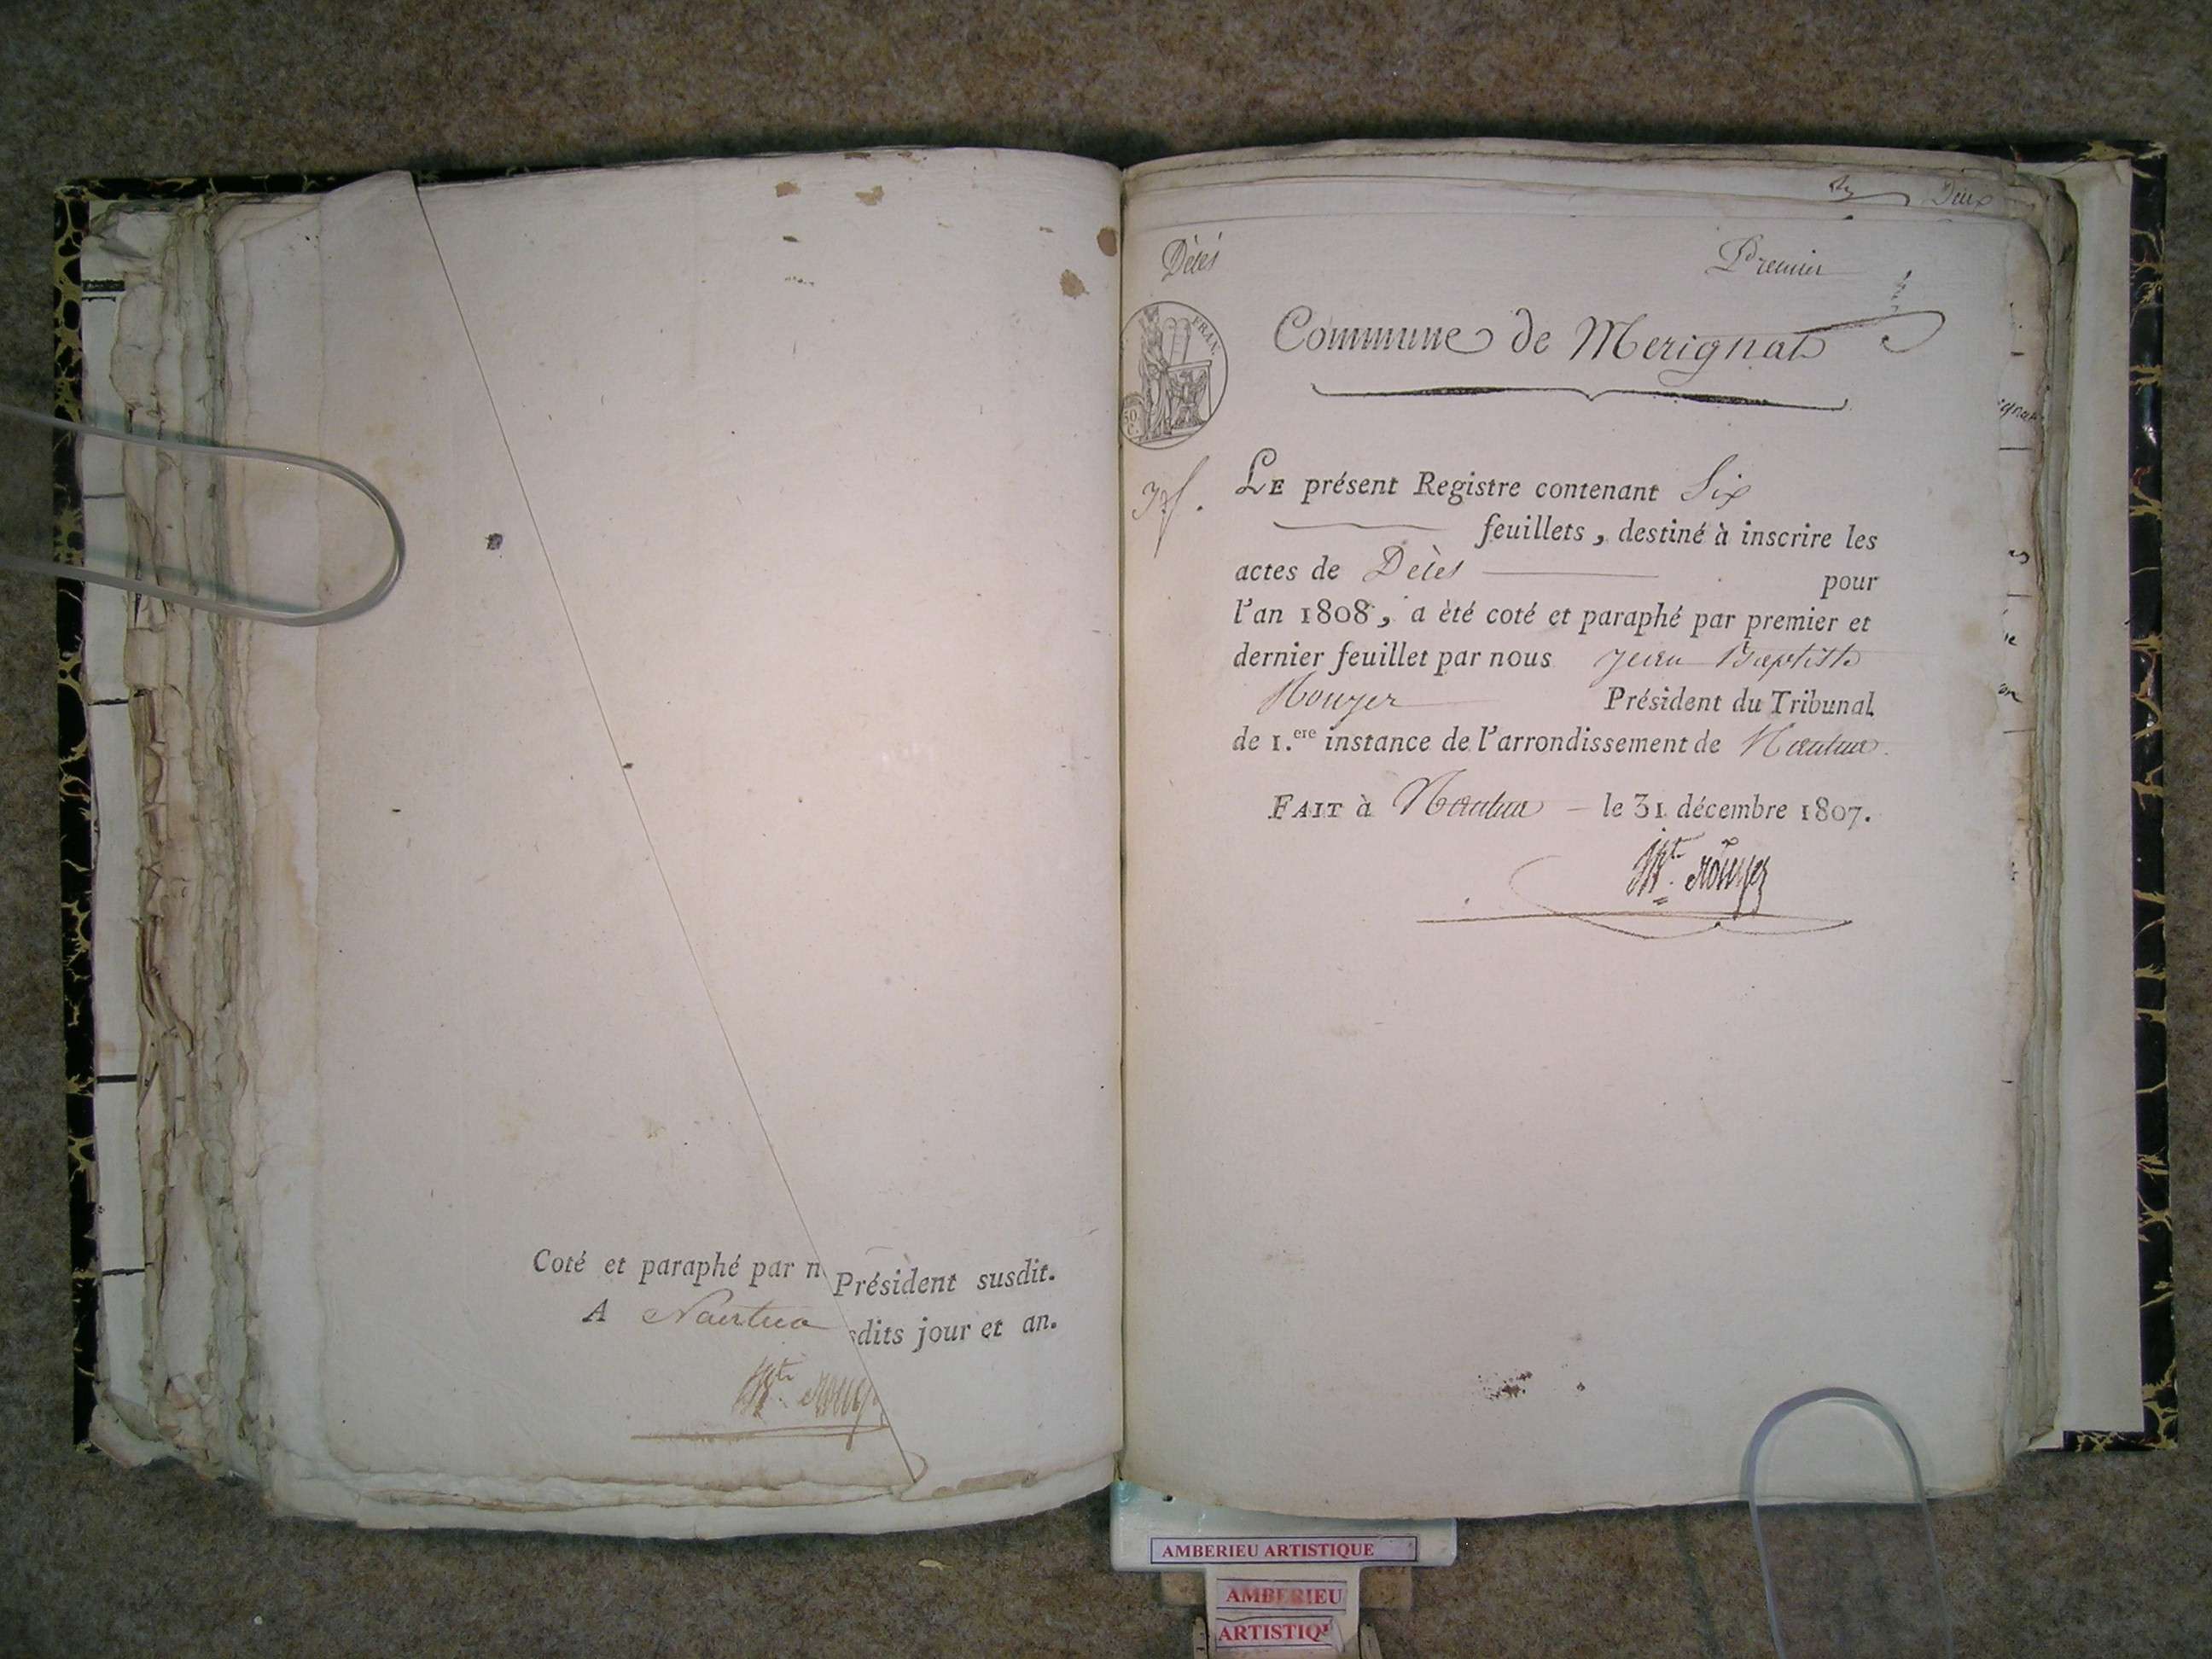 Coté et paraphé par n
Président susdit.
A Nantua
sdits jour et an.
Deux
Décès
Premier
Commune de Merignat
FRAN.
50
C.
LE présent Registre contenant Six
feuillets, destiné à inscrire les
actes de Décès pour
l'an 1808, a été coté et paraphé par premier et
dernier feuillet par nous Jean Baptiste
Rouyer Président du Tribunal
de 1.ere instance de l'arrondissement de Nantua
FAIT à Nantua – le 31 décembre 1807.
Bte. Rouyer
AMBERIEU ARTISTIQUE
AMBERIEU
ARTISTIQU